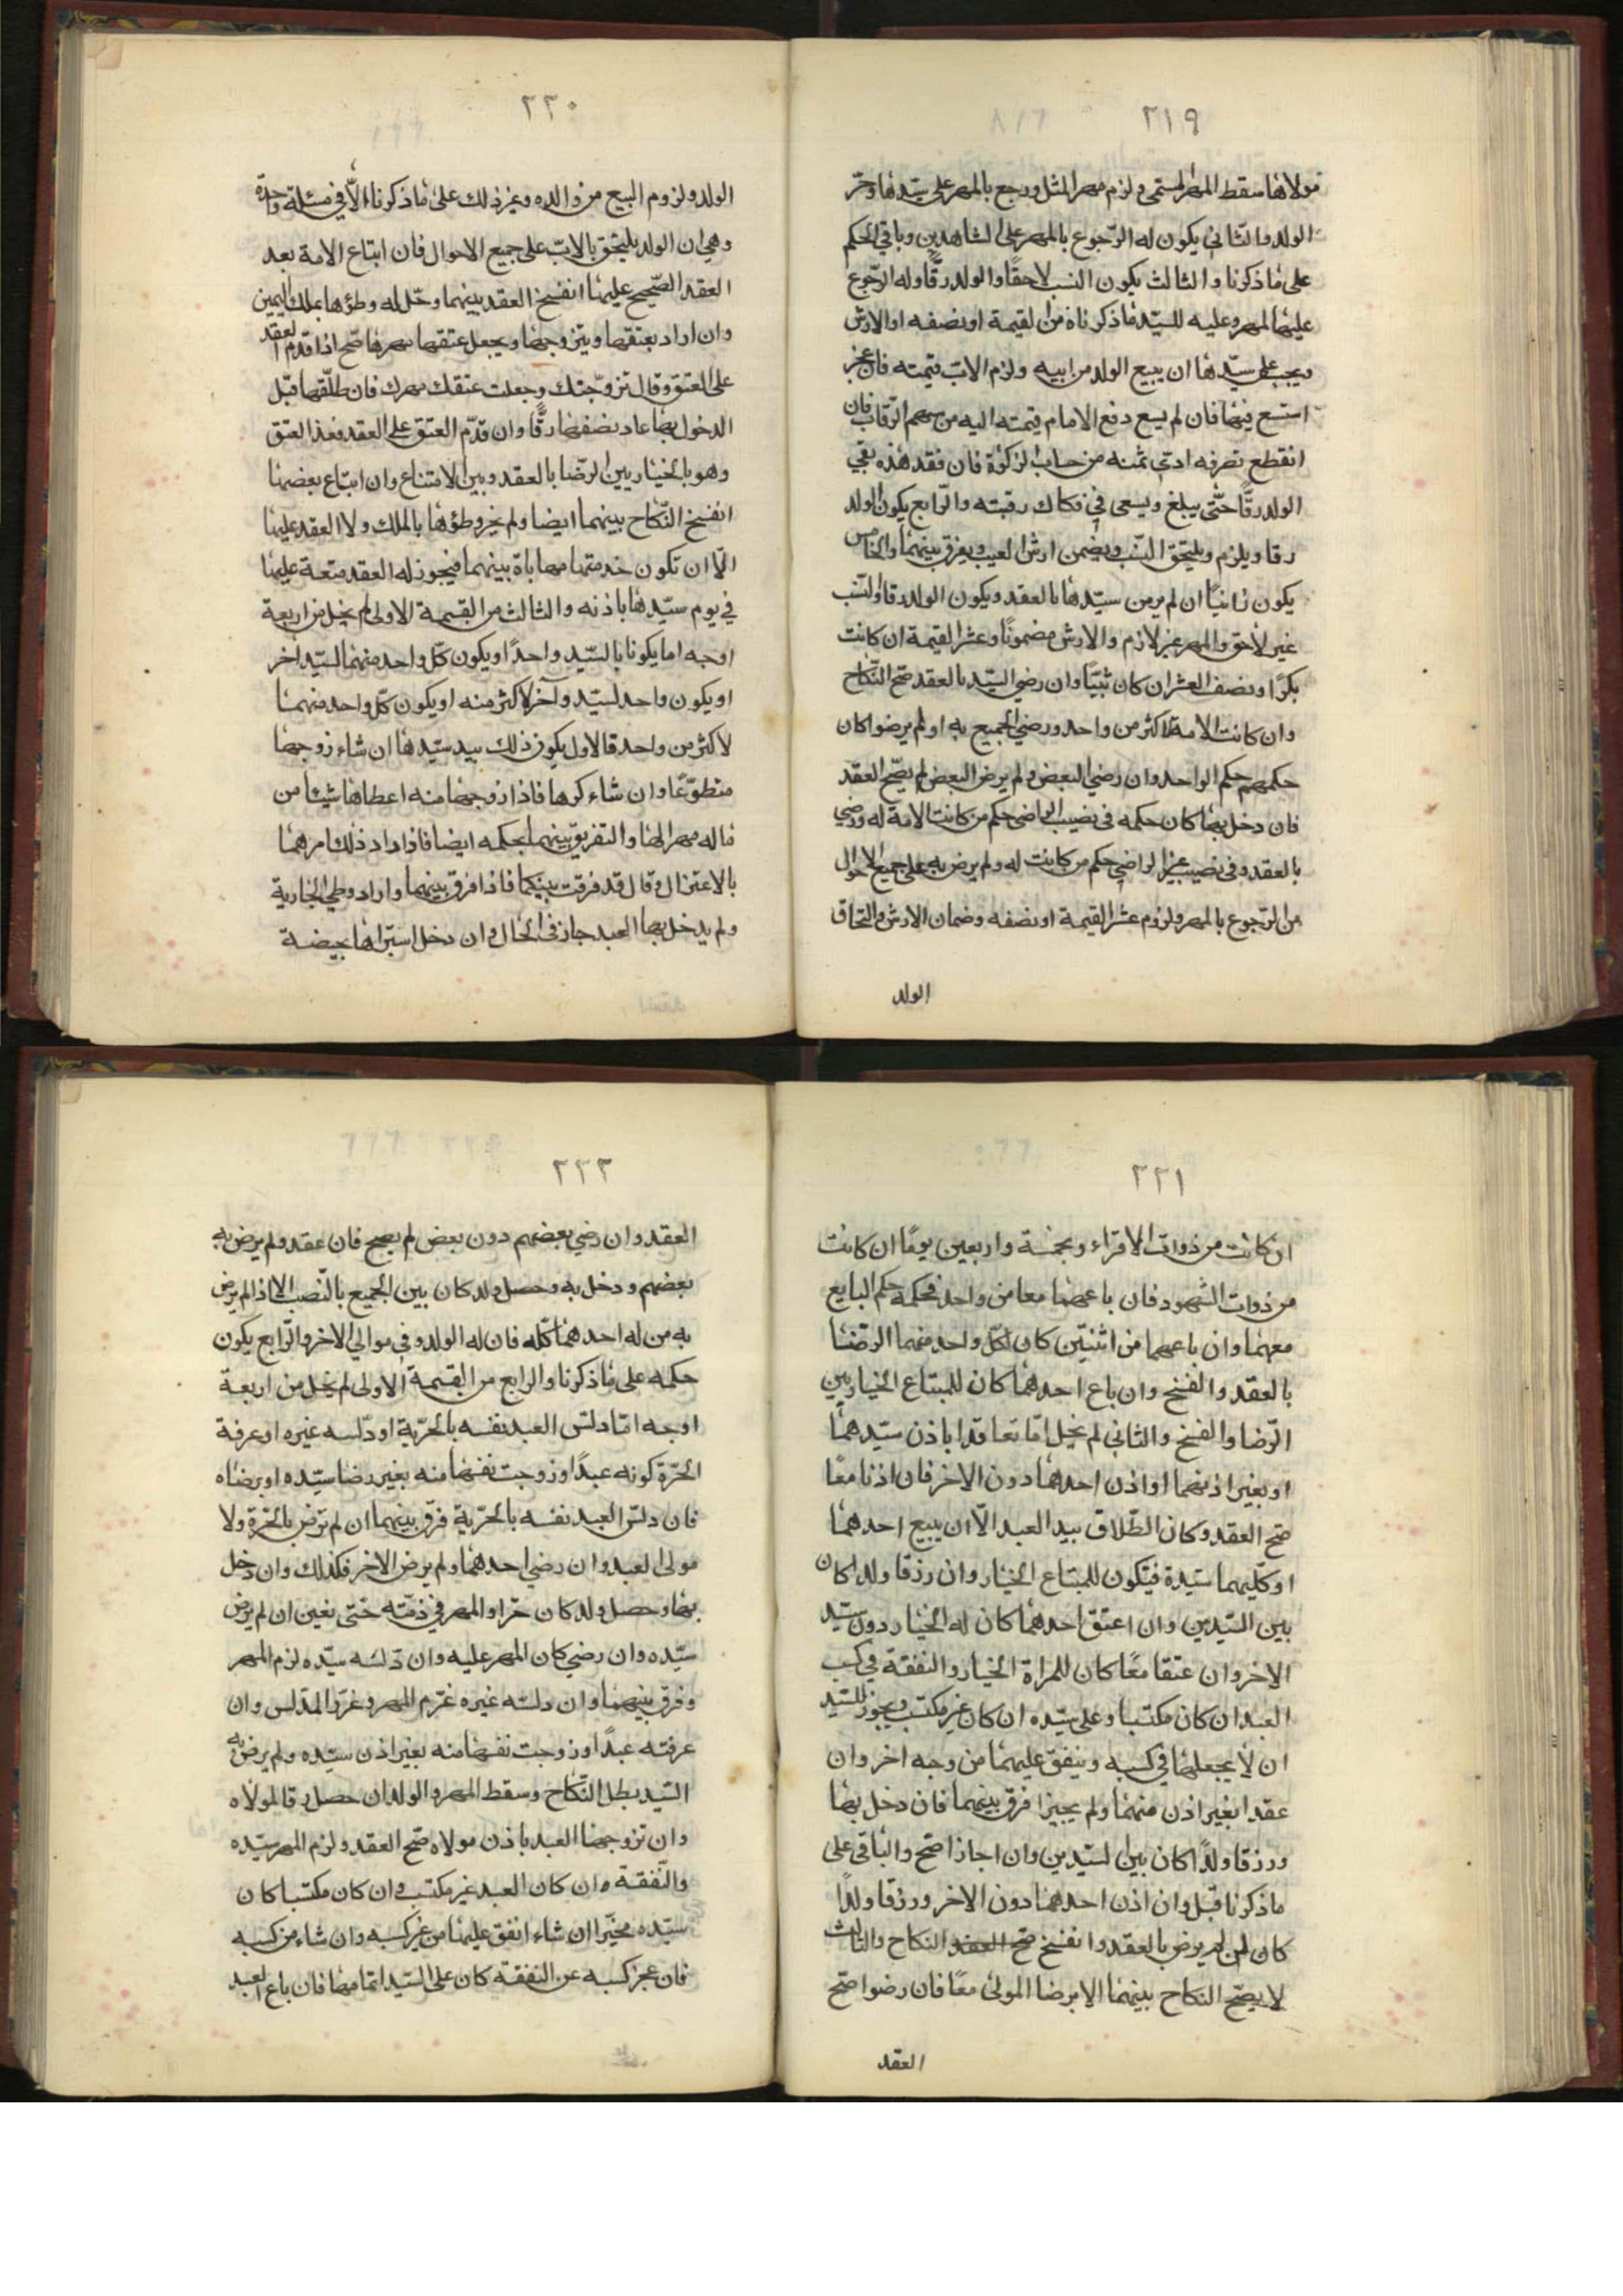 ٢١٩
مولاها سقط المهر المسمى ولزم مهر المثل ورجع بالمهر على سيدها وحر
الولد والثانى يكون له الرجوع بالمهر على الشاهدين وباقي الحكم
على ما ذكرنا والثالث يكون النسب لاحقا والولد رقا وله الرجوع
عليها بالمهر وعليه للسيد ما ذكرناه من القيمة او نصفه او الارش
ويجب على سيدها ان يبيع الولد من ابيه ولزم الاب قيمته فان عجز
استسع فيها فان لم يسع دفع الامام قيمته اليه من سهم الرقاب فان
انقطع تصرفه ادى ثمنه من حساب الزكوة فان فقد هذه بقي
الولد رقا حتى يبلغ ويسعى في فكاك رقبته والرابع يكون الولد
رقا ويلزم ويلتحق النسب ويضمن ارش العيب ويفرق بينهما والخامس
يكون زانيا ان لم يرض سيدها بالعقد ويكون الولد رقا والنسب
غير لاحق والمهر غير لازم والارش مضمونا وعشر القيمة ان كانت
بكرا ونصف العشر ان كان ثيبا وان رضي السيد بالعقد صح النكاح
وان كانت الامة لاكثر من واحد ورضي الجميع به او لم يرضوا كان
حكمهم حكم الواحد وان رضي البعض ولم يرض البعض لم يصح العقد
فان دخل بها كان حكمه فى نصيب الراضى حكم من كانت الامة له ورضي
بالعقد وفى نصيب غير الراضي حكم من كانت له ولم يرض به على جميع الاحوال
من الرجوع بالمهر ولزوم عشر القيمة او نصفه وضمان الارش والتحاق
الولد
٢٢٠
الولد ولزوم البيع من والده وغير ذلك على ما ذكرناه الا في مسئلة واحدة
وهي ان الولد يلتحق بالاب على جميع الاحوال فان ابتاع الامة بعد
العقد الصحيح عليها انفسخ العقد بينهما وحل له وطؤها بملك اليمين
وان اراد بعتقها ويتزوجها ويجعل عتقها مهرها صح اذا قدم العقد
على العتق وقال تزوجتك وجعلت عتقك مهرك فان طلقها قبل
الدخول بها عاد نصفها رقا وان قدم العتق على العقد فغذ العتق
وهو بالخيار بين الرضا بالعقد وبين الامتناع وان ابتاع بعضها
انفسخ النكاح بينهما ايضا ولم يخر وطؤها بالملك ولا العقد عليها
الا ان تكون خدمتها مهاباة بينهما فيجوز له العقد متعة عليها
في يوم سيدها باذنه والثالث من القسمة الاولى لم يخل من اربعة
اوجه اما يكونا بالسيد واحدا او يكون كل واحد منهما لسيد اخر
او يكون واحد لسيد وآخر لاكثر منه او يكون كل واحد منهما
لاكثر من واحد فالاول يكون ذلك بيد سيدها ان شاء زوجها
منطوعا وان شاء كرها فاذا زوجها منه اعطاها شيئا من
ماله مهرا لها والتفريق بينهما بحكمه ايضا فاذا اراد ذلك مرهما
بالاعتزال وقال قد فرقت بينكما فاذا فرق بينهما واراد وطي الجارية
ولم يدخل بها العبد جاز فى الحال وان دخل استبراها بحيضة
٢٢١
ان كانت من ذوات الاقراء وبخمسة واربعين يوما ان كانت
من ذوات الشهود فان باعهما معا من واحد فحكمه حكم البايع
معهما وان باعهما من اثنين كان لكل واحد منهما الرضا
بالعقد والفسخ وان باع احدهما كان للمبتاع الخيار بين
الرضا والفسخ والثاني لم يخل اما تعاقدا باذن سيدهما
او بغير اذنهما او اذن احدهما دون الاخر فان اذنا معا
صح العقد وكان الطلاق بيد العبد الا ان يبيع احدهما
او كليهما سيدة فيكون للمبتاع الخيار وان رزقا ولدا كان
بين السيدين وان اعتق احدهما كان له الخيار دون سيد
الاخر وان عتقا معا كان للمراة الخيار والنفقة في كسب
العبد ان كان مكتسبا وعلى سيده ان كان غير مكتسب ويجوز للسيد
ان لا يجعلها في كسبه وينفق عليهما من وجه اخر وان
عقدا بغير اذن منهما ولم يجيزا فرق بينهما فان دخل بها
ورزقا ولدا كان بين السيدين وان اجازا صح والباقى على
ما ذكرنا قبل وان اذن احدهما دون الاخر ورزقا ولدا
كان لمن لم يرض بالعقد وانفسخ صح العقد النكاح والثالث
لا يصح النكاح بينهما الا برضا الموالى معا فان رضوا صح
العقد
٢٢٢
العقد وان رضي بعضهم دون بعض لم يصح فان عقد ولم يرض به
بعضهم ودخل به وحصل ولد كان بين الجميع بالنصب الا اذا لم يرض
به من له احدهما كله فان له الولد وفي موالي الاخر والرابع يكون
حكمه على ما ذكرنا والرابع من القسمة الاولى لم يخل من اربعة
اوجه اما دلس العبد نفسه بالحرية او دلسه غيره او عرفة
الحرة كونه عبدا وزوجت نفسها منه بغير رضا سيده او برضاه
فان دلس العبد نفسه بالحرية فرق بينهما ان لم ترض بالحرة ولا
مولى العبد وان رضي احدهما ولم يرض الاخر فكذلك وان دخل
بها وحصل ولد كان حرا والمهر في ذمته حتى يغين ان لم يرض
سيده وان رضي كان المهر عليه وان دلسه سيده لزم المهر
وفرق بينهما وان دلسه غيره غرم المهر وغرر المدلس وان
عرفته عبدا وزوجت نفسها منه بغير اذن سيده ولم يرض به
السيد بطل النكاح وسقط المهر والولد ان حصل رقا لمولاه
وان تزوجها العبد باذن مولاه صح العقد ولزم المهر سيده
والنفقة وان كان العبد غير مكتسب وان كان مكتسبا كان
سيده مخيرا ان شاء انفق عليها من غير كسبه وان شاء من كسبه
فان عجز كسبه عن النفقة كان على السيد اتمامها فان باع العبد